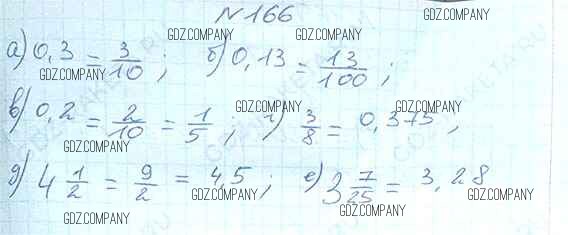 №166
а) 0,3 = 3/10 ; б) 0,13 = 13/100 ;
в) 0,2 = 2/10 = 1/5 ; г) 3/8 = 0,375 ;
д) 4 1/2 = 9/2 = 4,5 ; е) 3 7/25 = 3,28
GDZ.COMPANY
GDZ.COMPANY
GDZ.COMPANY
GDZ.COMPANY
GDZ.COMPANY
GDZ.COMPANY
GDZ.COMPANY
GDZ.COMPANY
GDZ.COMPANY
GDZ.COMPANY
GDZ.COMPANY
GDZ.COMPANY